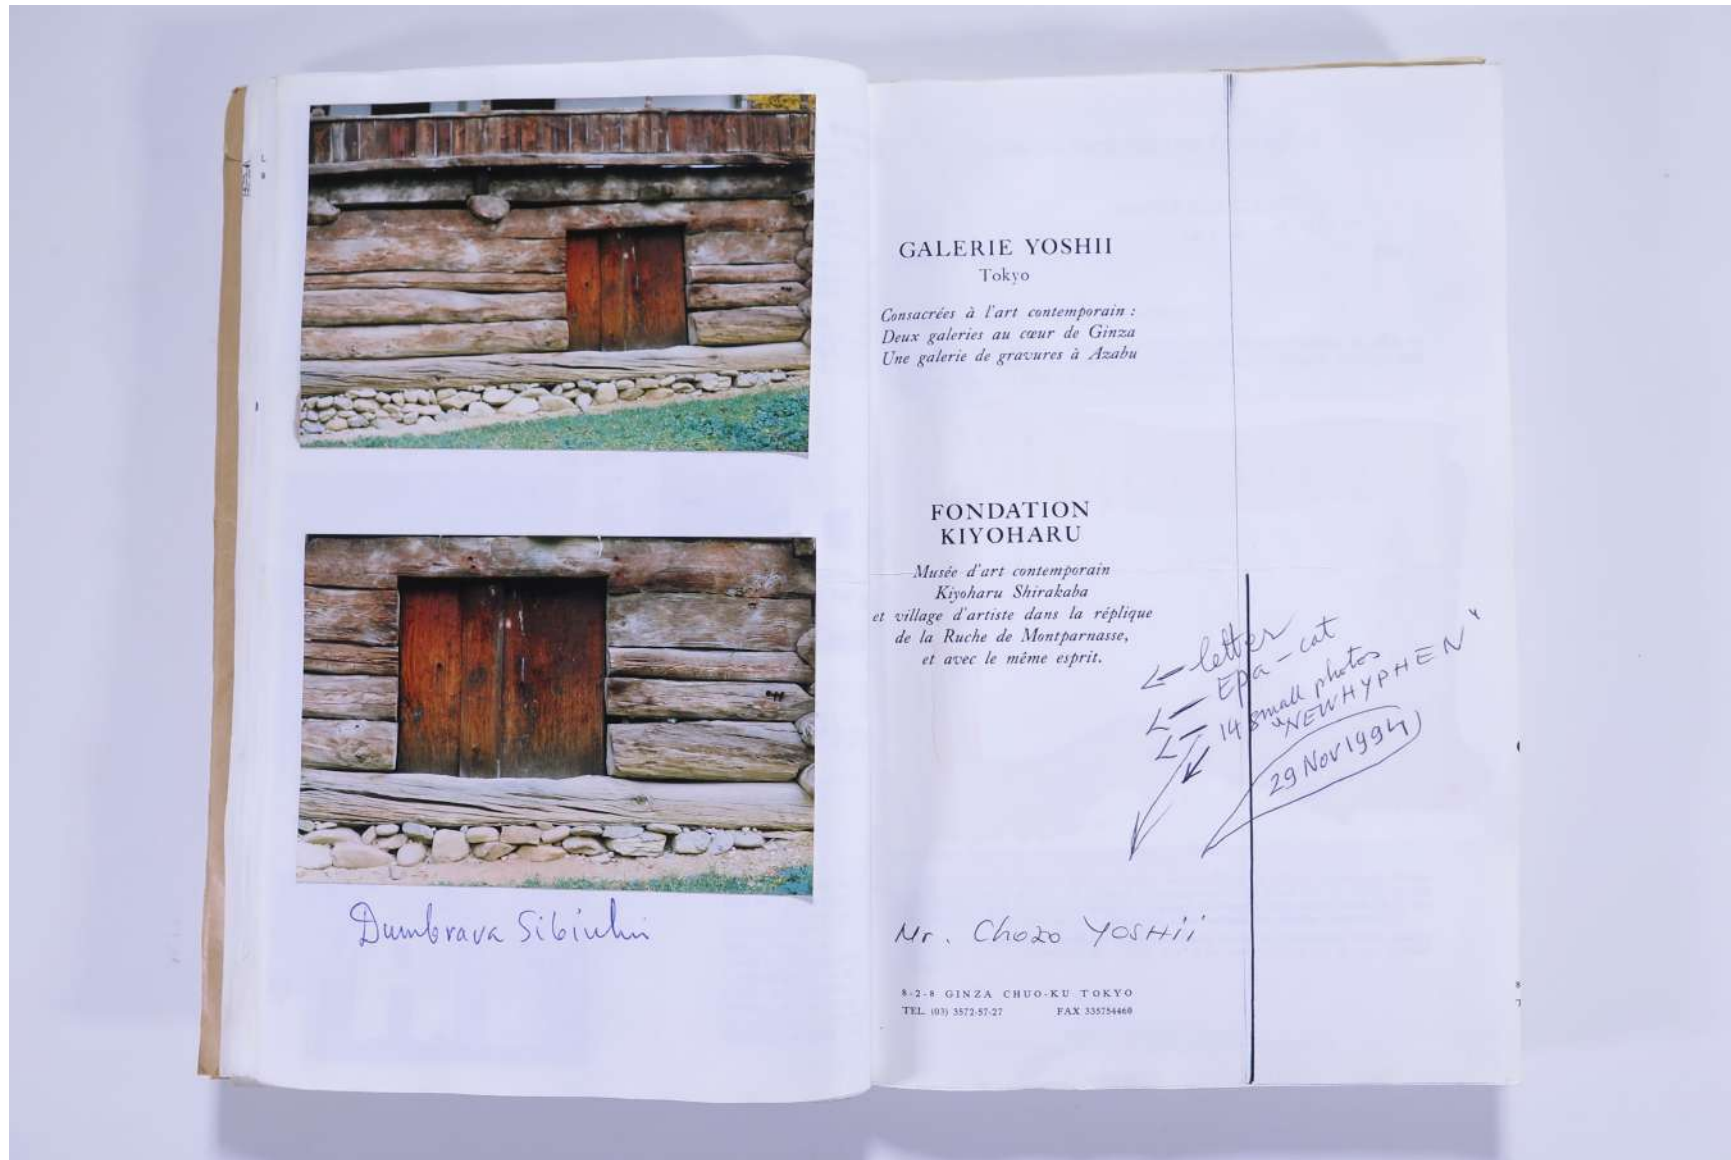 Dumbrava Sibiului
GALERIE YOSHII
Tokyo
Consacrées à l'art contemporain :
Deux galeries au cœur de Ginza
Une galerie de gravures à Azabu
FONDATION
KIYOHARU
Musée d'art contemporain
Kiyoharu Shirakaba
et village d'artiste dans la réplique
de la Ruche de Montparnasse,
et avec le même esprit.
← letter
← Epa - cat
← 14 small photos
"NEW HYPHEN"
29 Nov 1994
Mr. Chozo YOSHii
8-2-8 GINZA CHUO-KU TOKYO
TEL. (03) 3572-57-27 FAX 335754460